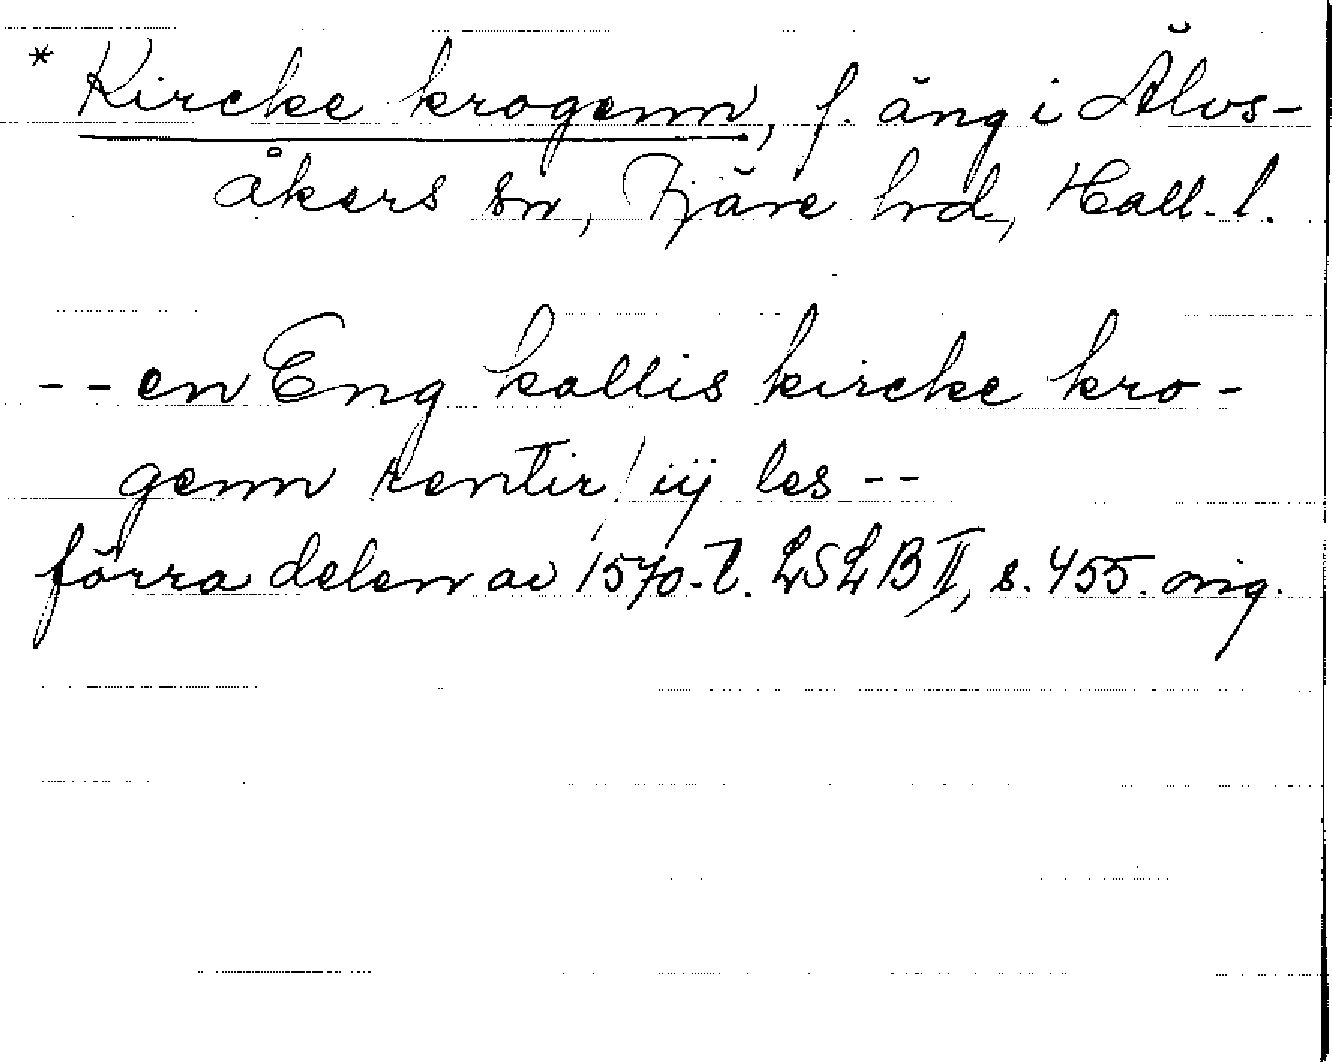 * Kircke krogenn, f. äng i Älvs-
åkers sn, Fjäre hrd, Hall. l.
-- en Eng kallis kircke kro-
genn rentir / iij les --
förra delen av 1570-t. LSLB II, s. 455. orig.